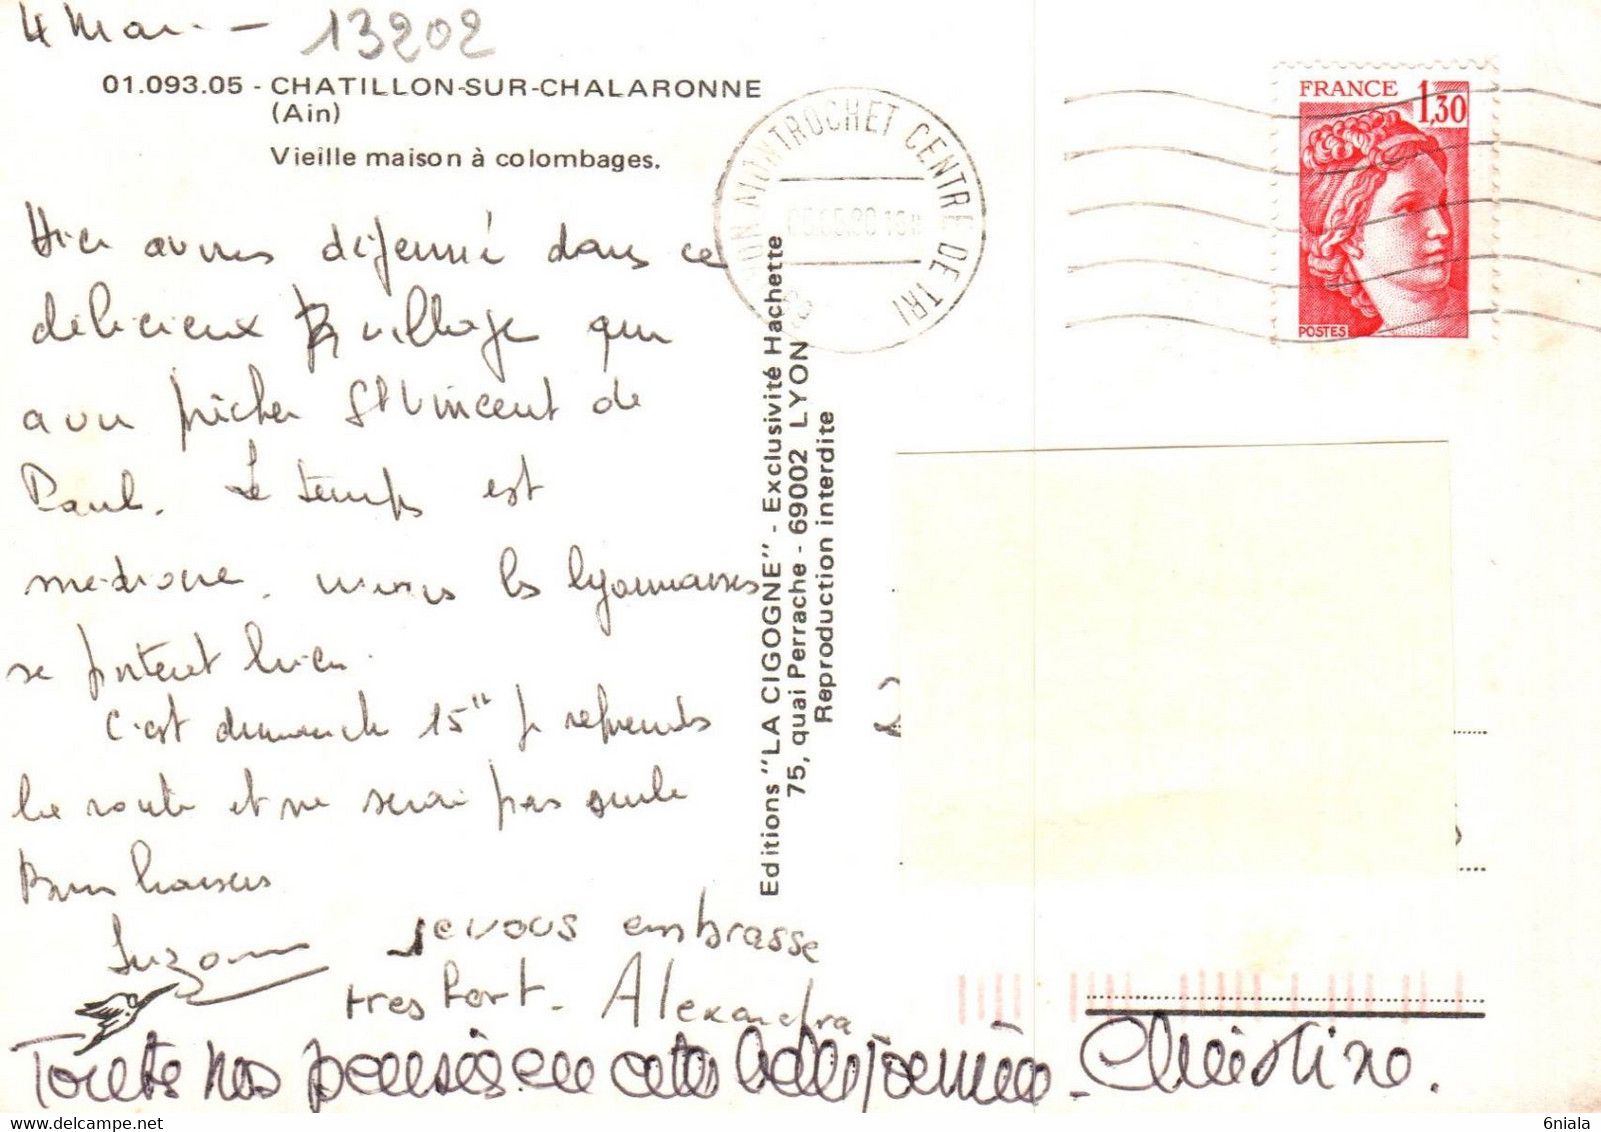 4 Mai - 13202
01.093.05 - CHATILLON-SUR-CHALARONNE
(Ain)
Vieille maison à colombages.
Hier avons déjeuné dans ce
délicieux village qui
a vu prêcher St Vincent de
Paul. Le temps est
médiocre, mais les lyonnaises
se portent bien.
C'est dimanche 15 je reprends
la route et ne serai pas seule
Bons baisers
Suzanne
je vous embrasse
tres fort. Alexandra
Toutes nos pensées en cette belle journée. Christine.
Editions "LA CIGOGNE" - Exclusivité Hachette
75, quai Perrache - 69002 LYON
Reproduction interdite
LYON MONTROCHET CENTRE DE TRI
FRANCE 1,30
POSTES
6niala